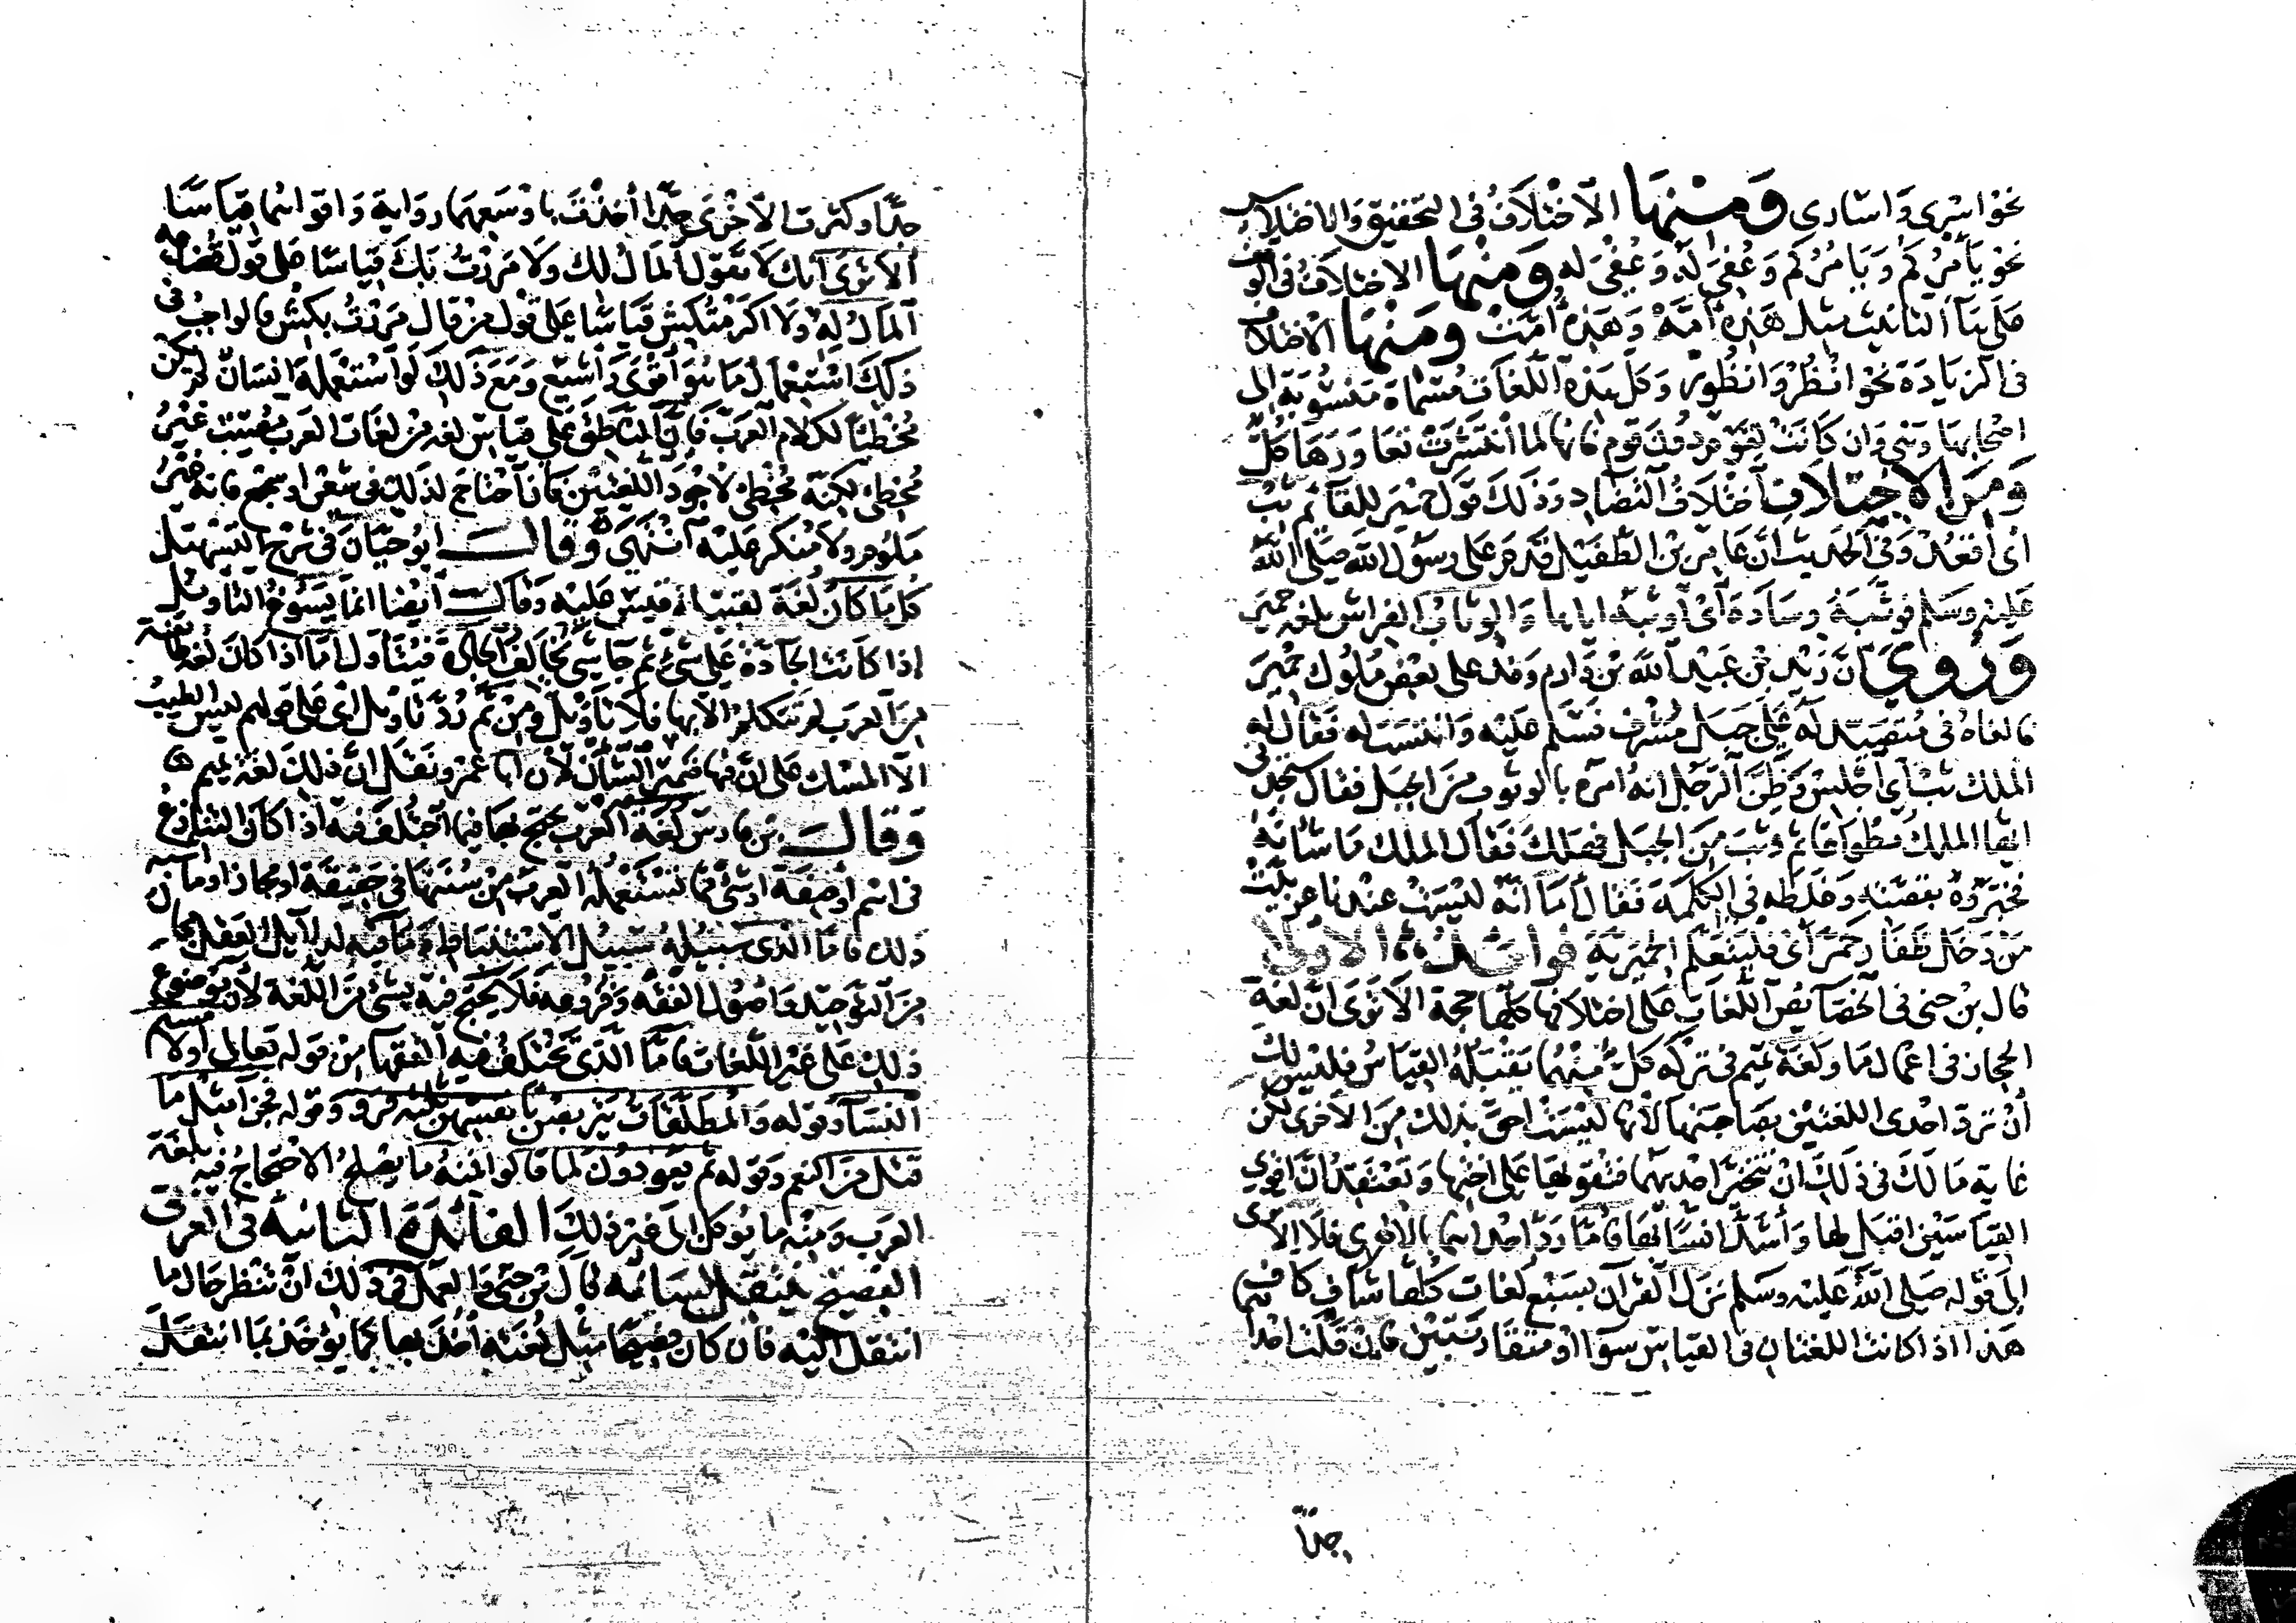 نحو اسرى واسارى ومنها الاختلاف في التحقيق والاختلاس
نحو يأمركم ويامركم وعفي له وعفي له ومنها الاختلاف في الوقف
على هاء التانيث مثل هذه أمه وهذه أمت ومنها الاختلاف
في الزيادة نحو انظر وانظور وكل هذه اللغات مسماة منسوبة الى
اصحابها وهي وان كانت لقوم دون قوم فانها لما انتشرت تعاورها كل
ومن الاختلاف اختلاف التضاد وذلك قول حمير للقائم ثب
أي أقعد وفي الحديث ان عامر بن الطفيل قدم على رسول الله صلى الله
عليه وسلم فوثبه وسادة أي أوثبه اياها والوثاب الفراش بلغة حمير
وروي أن زيد بن عبد الله بن دارم وفد على بعض ملوك حمير
فالفاه في متصيد له على جبل مشرف فسلم عليه وانتسب له فقال له
الملك ثب أي اجلس وظن الرجل انه امره بالوثوب من الجبل فقال ستجدني
ايها الملك مطواعا ثم وثب من الجبل فهلك فقال الملك ما شانه
فخبروه بقصته وغلطه في الكلمة فقال أما انه ليست عندنا عربيت
من دخل ظفار حمر أي فليتعلم الحميرية فوائد الاولى
قال بن جني في الخصائص اللغات على اختلافها كلها حجة الا ترى ان لغة
الحجاز في اعمال ما ولغة تميم في تركه كل منهما يقبله القياس فليس لك
أن ترد احدى اللغتين بصاحبتها لانها ليست احق بذلك من الاخرى لكن
غاية مالك في ذلك ان تتخير احديهما فتقويها على اختها وتعتقد ان اقوى
القياسين اقبل لها وأشد انسا بها فاما رد احداهما بالاخرى فلا الا ترى
الى قوله صلى الله عليه وسلم نزل القرآن بسبع لغات كلها شاف كاف
هذا اذا كانت اللغتان في القياس سوا او متقاربتين فان قلت احداهما
جدا
جدا وكثرت الاخرى جدا أخذت باوسعهما رواية واقواهما قياسا
ألا ترى انك لا تقول المال لك ولا مررت بك قياسا على قول قضاعه
المال له ولا اكرمتكش قياسا على قول من قال مررت بكش فالواجب في
ذلك استعمال ما هو أقوى وأشيع ومع ذلك لو استعمله انسان لم يكن
مخطئا لكلام العرب فان الناطق على قياس لغة من لغات العرب مصيب غير
مخطئ لكنه مخطئ لاجود اللغتين فان احتاج لذلك في شعر او سجع فانه غير
ملوم ولا منكر عليه انتهى وقال ابو حيان في شرح التسهيل
كلما كان لغة لقبيلة قيس عليه وقال أيضا انما يسوغ التاويل
إذا كانت الجادة على شيء ثم جا شي يخالف الجادة فيتأول أما اذا كان لغة طائفة
من العرب لم تتكلم الا بها فلا تأويل ومن ثم رد تأويل أبي علي قولهم ليس الطيب
الا المسك على ان فيها ضمير الشأن لان ابا عمرو نقل ان ذلك لغة تميم
وقال بن فارس لغة العرب يحتج بها فيما اختلف فيه اذا كان التنازع
في اسم أو صفة او شيء مما تستعمله العرب من سننها في حقيقة او مجاز او ما اشبه
ذلك فاما الذي سبيله سبيل الاستنباط وما فيه لدلائل العقل مجال
من التوحيد واصول الفقه وفروعه فلا يحتج فيه بشيء من اللغة لان موضوع
ذلك على غير اللغات فاما الذي يختلف فيه الفقها من قوله تعالى أو لامستم
النساء وقوله والمطلقات يتربصن بانفسهن ثلثة قروء وقوله فجزاء مثل ما
قتل من النعم وقوله ثم يعودون لما قالوا فمنه ما يصلح الاحتجاج فيه بلغة
العرب ومنه ما يوكل الى غير ذلك الفائدة الثانيه في العربي
الفصيح ينتقل لسانه قال بن جني والعمل في ذلك ان تنظر حال ما
انتقل اليه فان كان فصيحا مثل لغته أخذ بها كما يؤخذ بما انتقل